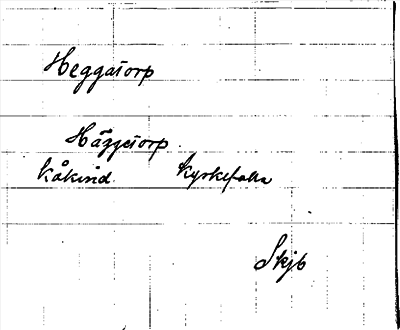 Heggatorp
Häggetorp
Kåkind Kyrkefalla
Skjb